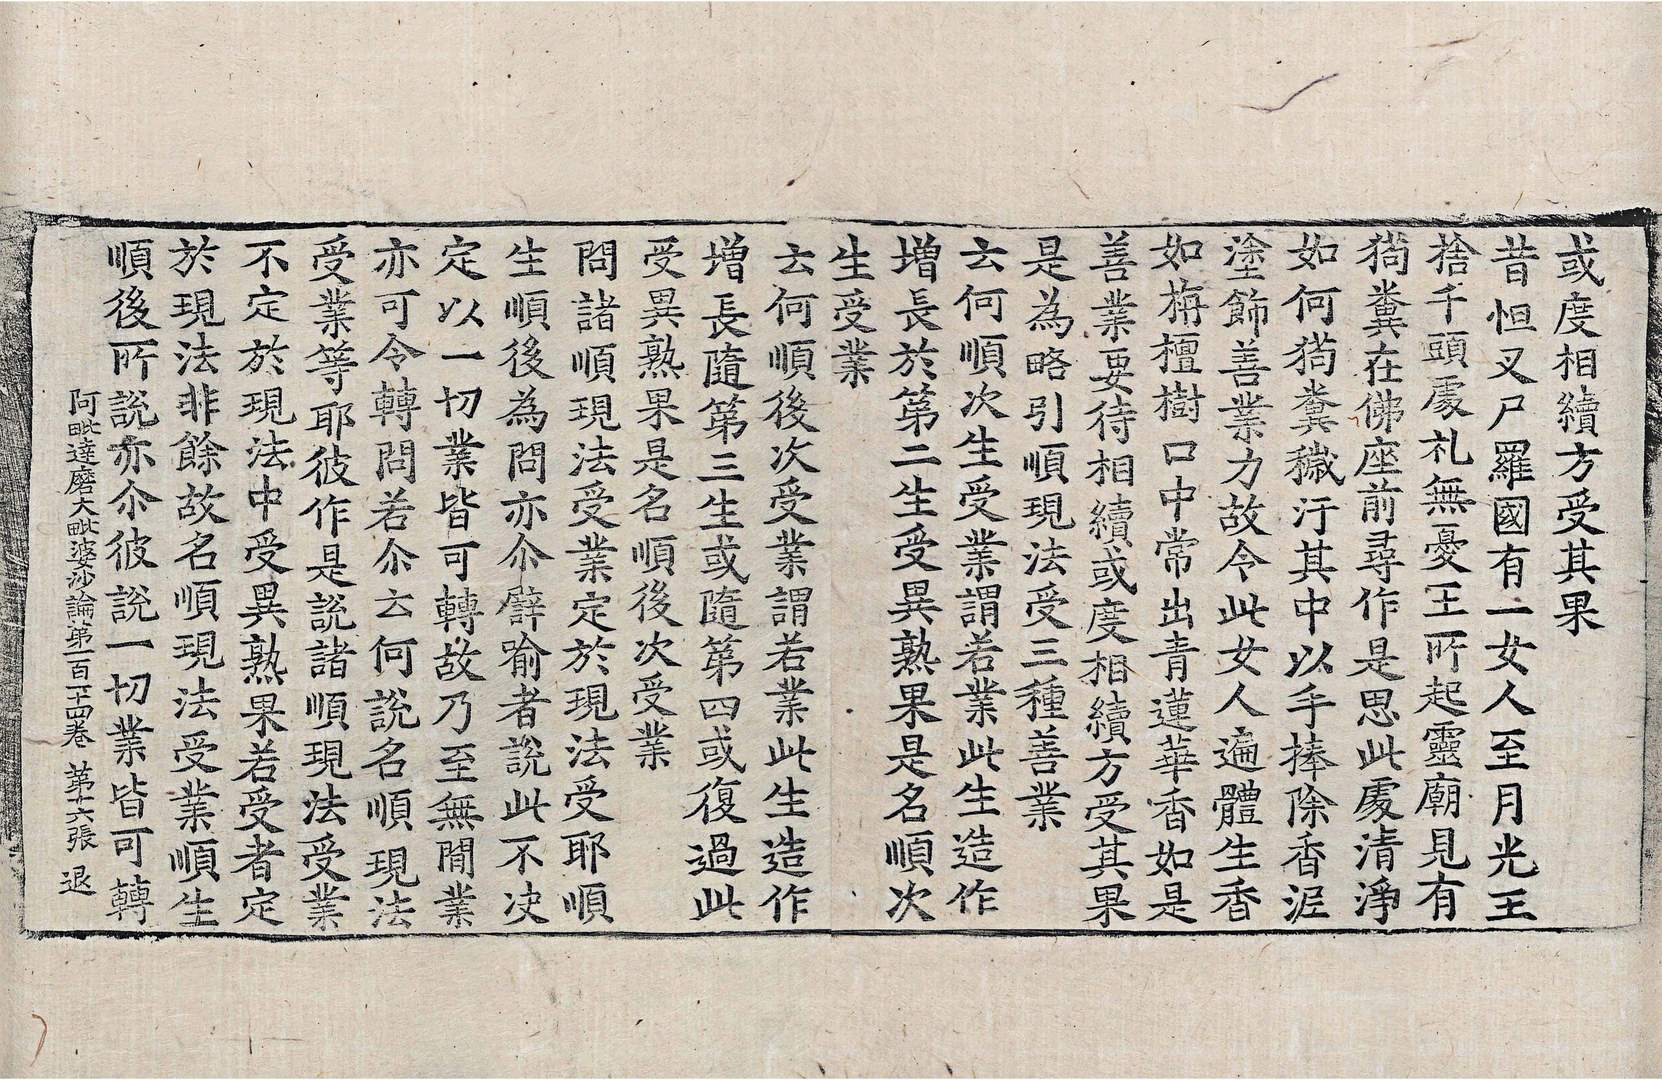 或度相續方受其果
昔怛叉尸羅國有一女人至月光王
捨千頭處礼無憂王所起靈廟見有
狗糞在佛座前尋作是思此處清淨
如何狗糞穢汙其中以手捧除香泥
塗飾善業力故令此女人遍體生香
如栴檀樹口中常出青蓮華香如是
善業要待相續或度相續方受其果
是為略引順現法受三種善業
云何順次生受業謂若業此生造作
增長於第二生受異熟果是名順次
生受業
云何順後次受業謂若業此生造作
增長隨第三生或隨第四或復過此
受異熟果是名順後次受業
問諸順現法受業定於現法受耶順
生順後為問亦尒譬喻者說此不决
定以一切業皆可轉故乃至無間業
亦可令轉問若尒云何說名順現法
受業等耶彼作是說諸順現法受業
不定於現法中受異熟果若受者定
於現法非餘故名順現法受業順生
順後所說亦尒彼說一切業皆可轉
阿毗達磨大毗婆沙論第一百一十四卷 第十六張 退